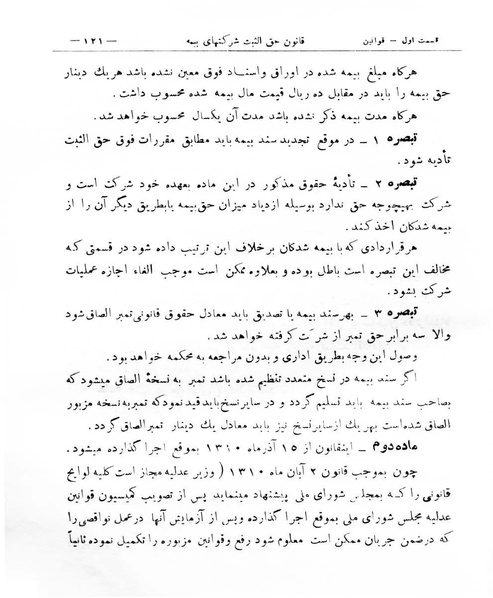 قسمت اول – قوانین
قانون حق الثبت شرکتهای بیمه
– ۱۲۱ –
هرگاه مبلغ بیمه شده در اوراق واسناد فوق معین نشده باشد هریك دینار
حق بیمه را باید در مقابل ده ریال قیمت مال بیمه شده محسوب داشت .
هرگاه مدت بیمه ذکر نشده باشد مدت آن یکسال محسوب خواهد شد.
تبصره ۱ – در موقع تجدید سند بیمه باید مطابق مقررات فوق حق الثبت
تأدیه شود .
تبصره ۲ – تأدیهٔ حقوق مذکور در این ماده بعهده خود شرکت است و
شرکت بهیچوجه حق ندارد بوسیله ازدیاد میزان حق‌بیمه یابطریق دیگر آن را از
بیمه شدکان اخذ کند .
هرقراردادی که با بیمه شدکان برخلاف این ترتیب داده شود در قسمتی که
مخالف این تبصره است باطل بوده و بعلاوه ممکن است موجب الغاء اجازه عملیات
شرکت بشود .
تبصره ۳ – بهرسند بیمه یا تصدیق باید معادل حقوق قانونی تمبر الصاق شود
والا سه برابر حق تمبر از شرکت گرفته خواهد شد.
وصول این وجه بطریق اداری و بدون مراجعه به محکمه خواهد بود .
اگر سند بیمه در نسخ متعدد تنظیم شده باشد تمبر به نسخهٔ الصاق میشود که
بصاحب سند بیمه باید تسلیم گردد و در سایر نسخ باید قید نمود که تمبر به نسخه مزبور
الصاق شده‌است بهریك ازسایر نسخ نیز باید معادل یك دینار تمبر الصاق گردد .
ماده دوم – اینقانون از ۱۵ آذرماه ۱۳۱۰ بموقع اجرا گذارده میشود .
چون بموجب قانون ۲ آبان ماه ۱۳۱۰ ( وزیر عدلیه مجاز است کلیه لوایح
قانونی را که بمجلس شورای ملی پیشنهاد مینماید پس از تصویب کمیسیون قوانین
عدلیه مجلس شورای ملی بموقع اجرا گذارده وپس از آزمایش آنها درعمل نواقصی را
که درضمن جریان ممکن است معلوم شود رفع وقوانین مزبوره را تکمیل نموده ثانیاً